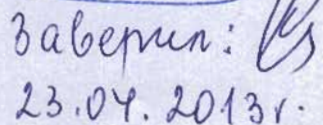 Заверил:
23.04.2013г.